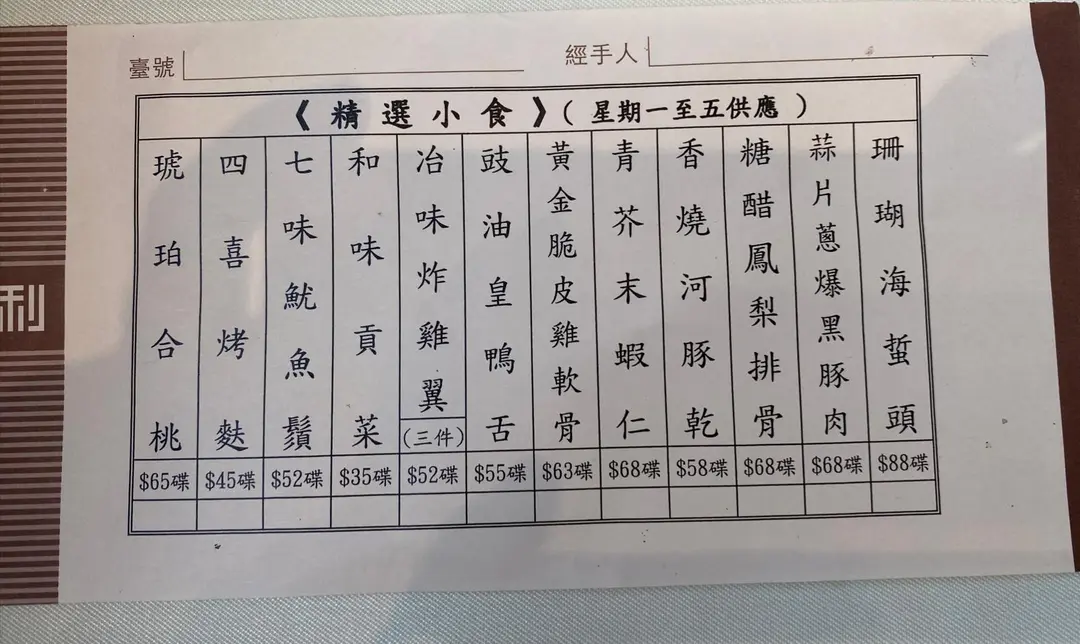 臺號
經手人
《精選小食》（星期一至五供應）
珊瑚海蜇頭
$88碟
蒜片蔥爆黑豚肉
$68碟
糖醋鳳梨排骨
$68碟
香燒河豚乾
$58碟
青芥末蝦仁
$68碟
黃金脆皮雞軟骨
$63碟
豉油皇鴨舌
$55碟
冶味炸雞翼
(三件)
$52碟
和味貢菜
$35碟
七味魷魚鬚
$52碟
四喜烤麩
$45碟
琥珀合桃
$65碟
利